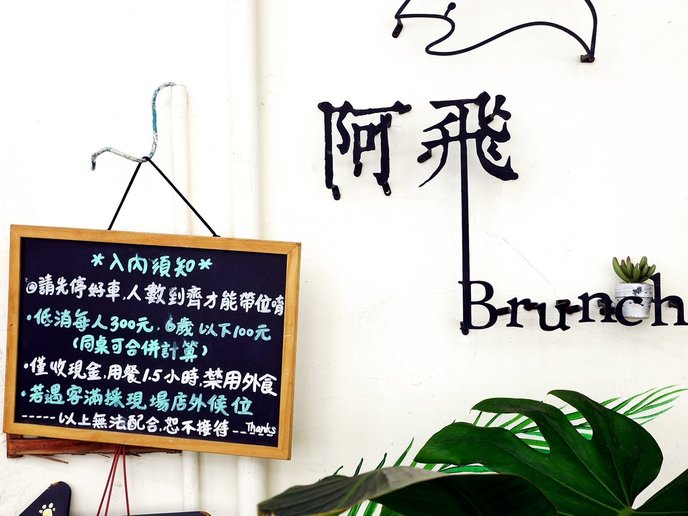 阿飛
Brunch
*入內須知*
@請先停好車,人數到齊才能帶位唷
·低消每人300元,6歲以下100元
(同桌可合併計算)
·僅收現金,用餐1.5小時,禁用外食
·若遇客滿採現場店外候位
-----以上無法配合,恕不接待-----Thanks